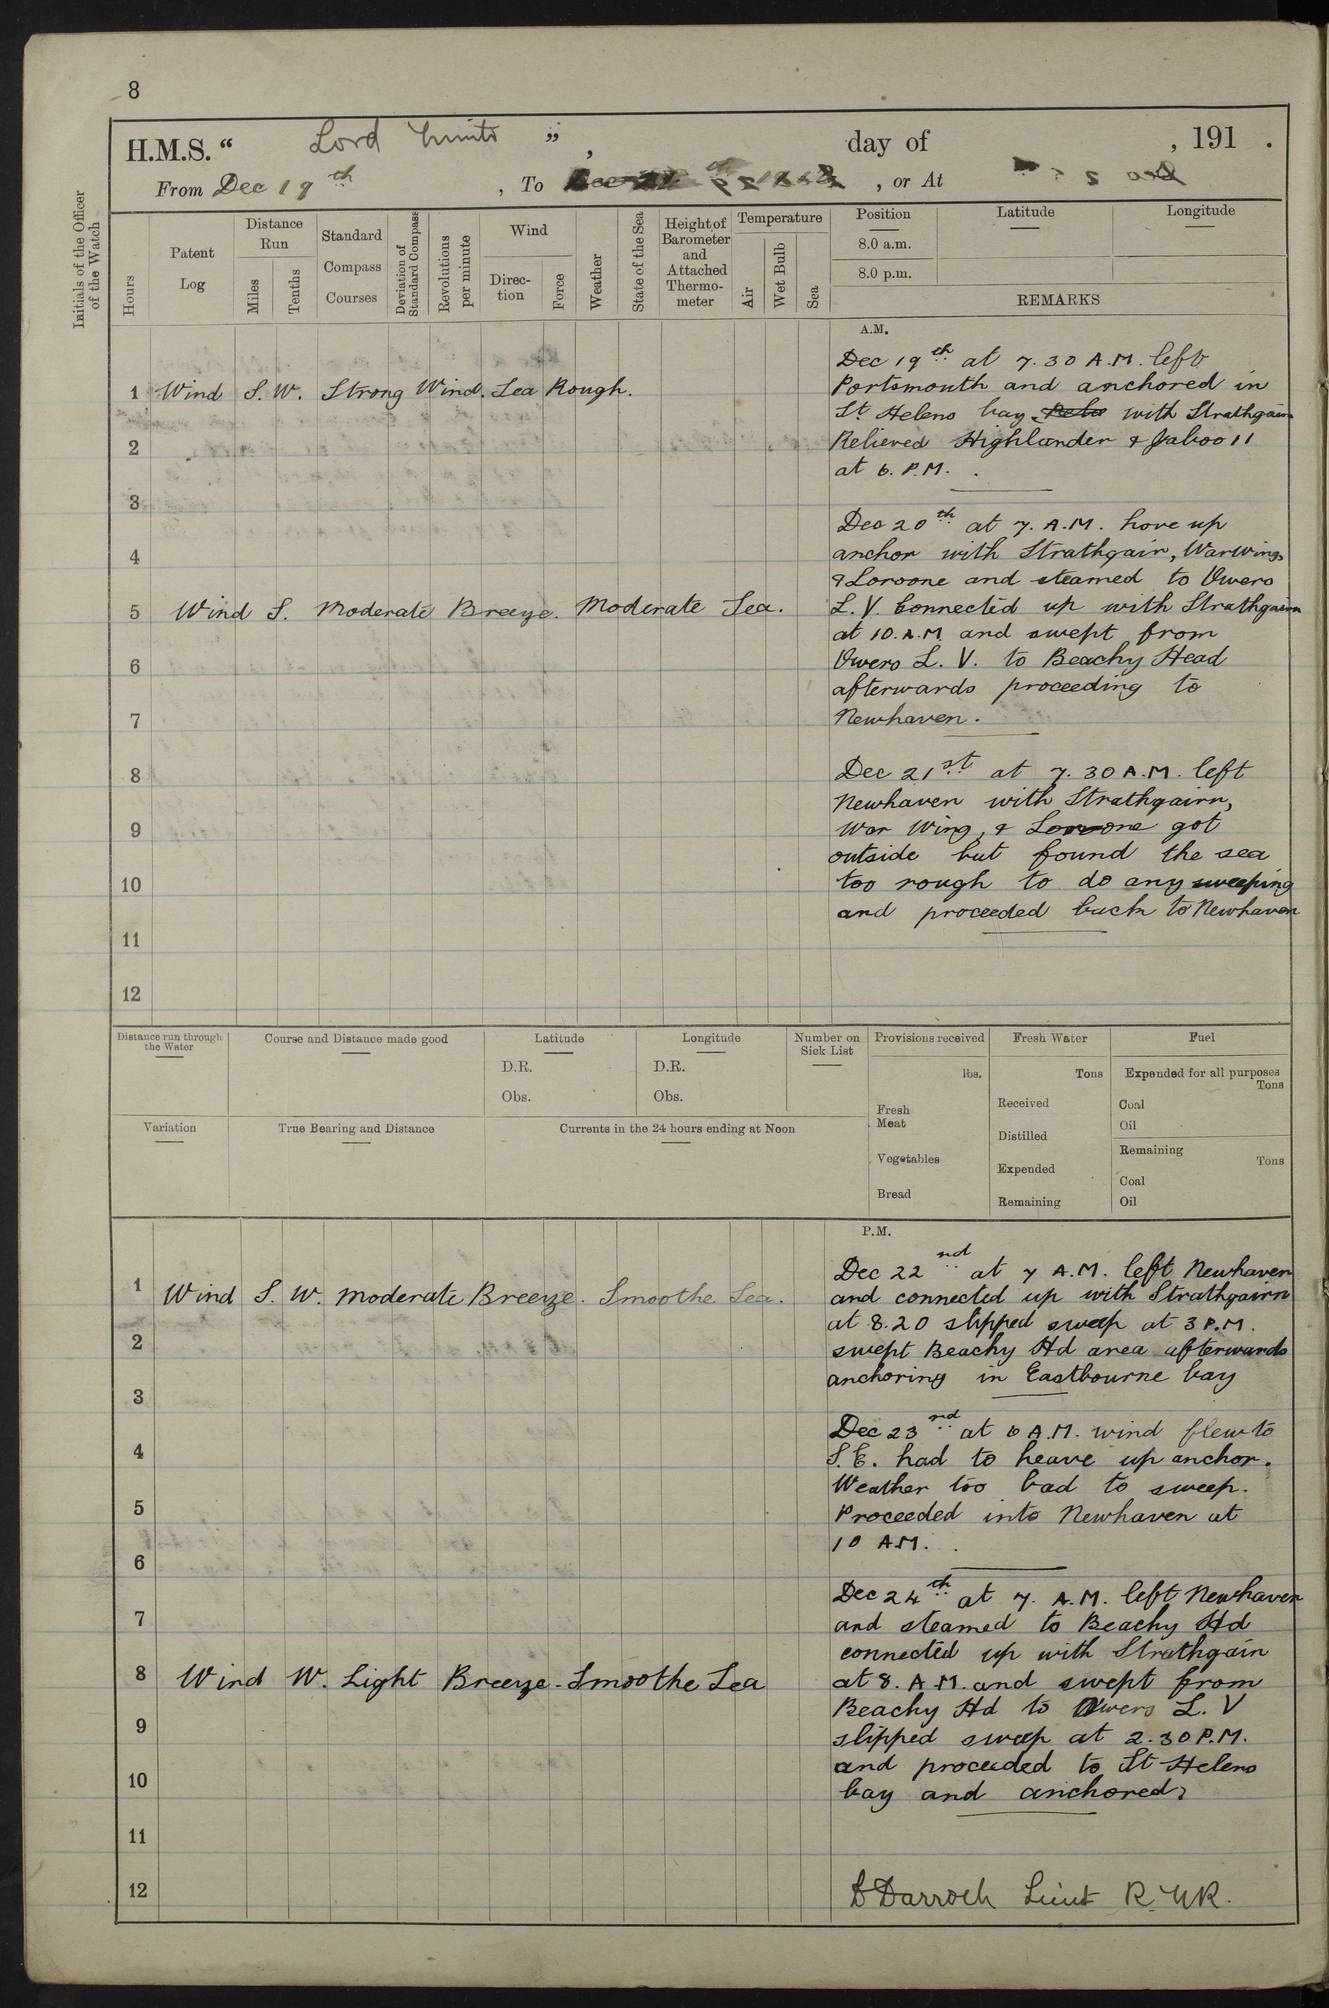 8
H.M.S. “ Lord Minto ”, day of , 191 .
From Dec 19th , To , or At
Initials of the Officer of the Watch
Hours
Patent Log
Distance Run
Miles
Tenths
Standard Compass Courses
Deviation of Standard Compass
Revolutions per minute
Wind
Direction
Force
Weather
State of the Sea
Height of Barometer and Attached Thermometer
Temperature
Air
Wet Bulb
Sea
Position
8.0 a.m.
8.0 p.m.
Latitude
Longitude
REMARKS
A.M.
Dec 19th at 7.30 A.M. left
1 Wind S.W. Strong Wind. Sea Rough.
Portsmouth and anchored in
St Helens bay. Rele with Strathgairn
2
Relieved Highlander & Jaboo II
at 6. P.M.
3
Dec 20th at 7. A.M. hove up
4
anchor with Strathgairn, Warwing,
& Loroone and steamed to Owers
5 Wind S. Moderate Breeze. Moderate Sea.
L. V. Connected up with Strathgairn
at 10. A.M. and swept from
6
Owers L. V. to Beachy Head
afterwards proceeding to
7
Newhaven.
8
Dec 21st at 7. 30 A.M. left
Newhaven with Strathgairn,
9
War Wing, & Loroone got
outside but found the sea
10
too rough to do any sweeping
and proceeded back to Newhaven
11
12
Distance run through the Water
Course and Distance made good
Latitude
D.R.
Obs.
Longitude
D.R.
Obs.
Number on Sick List
Provisions received
lbs.
Fresh Meat
Vegetables
Bread
Fresh Water
Tons
Received
Distilled
Expended
Remaining
Fuel
Expended for all purposes
Tons
Coal
Oil
Remaining
Tons
Coal
Oil
Variation
True Bearing and Distance
Currents in the 24 hours ending at Noon
P.M.
Dec 22nd at 7 A.M. left Newhaven
1 Wind S. W. Moderate Breeze. Smoothe Sea.
and connected up with Strathgairn
at 8.20 slipped sweep at 3 P.M.
2
swept Beachy Hd area afterwards
anchoring in Eastbourne bay
3
Dec 23rd at 6 A.M. wind flew to
4
S. E. had to heave up anchor.
Weather too bad to sweep.
5
Proceeded into Newhaven at
10 A.M.
6
Dec 24th at 7. A.M. left Newhaven
7
and steamed to Beachy Hd
connected up with Strathgairn
8 Wind W. Light Breeze. Smoothe Sea
at 8. A.M. and swept from
Beachy Hd to Owers L. V
9
slipped sweep at 2.30 P.M.
and proceeded to St Helens
10
bay and anchored.
11
12
D Darroch Lieut R.N.R.